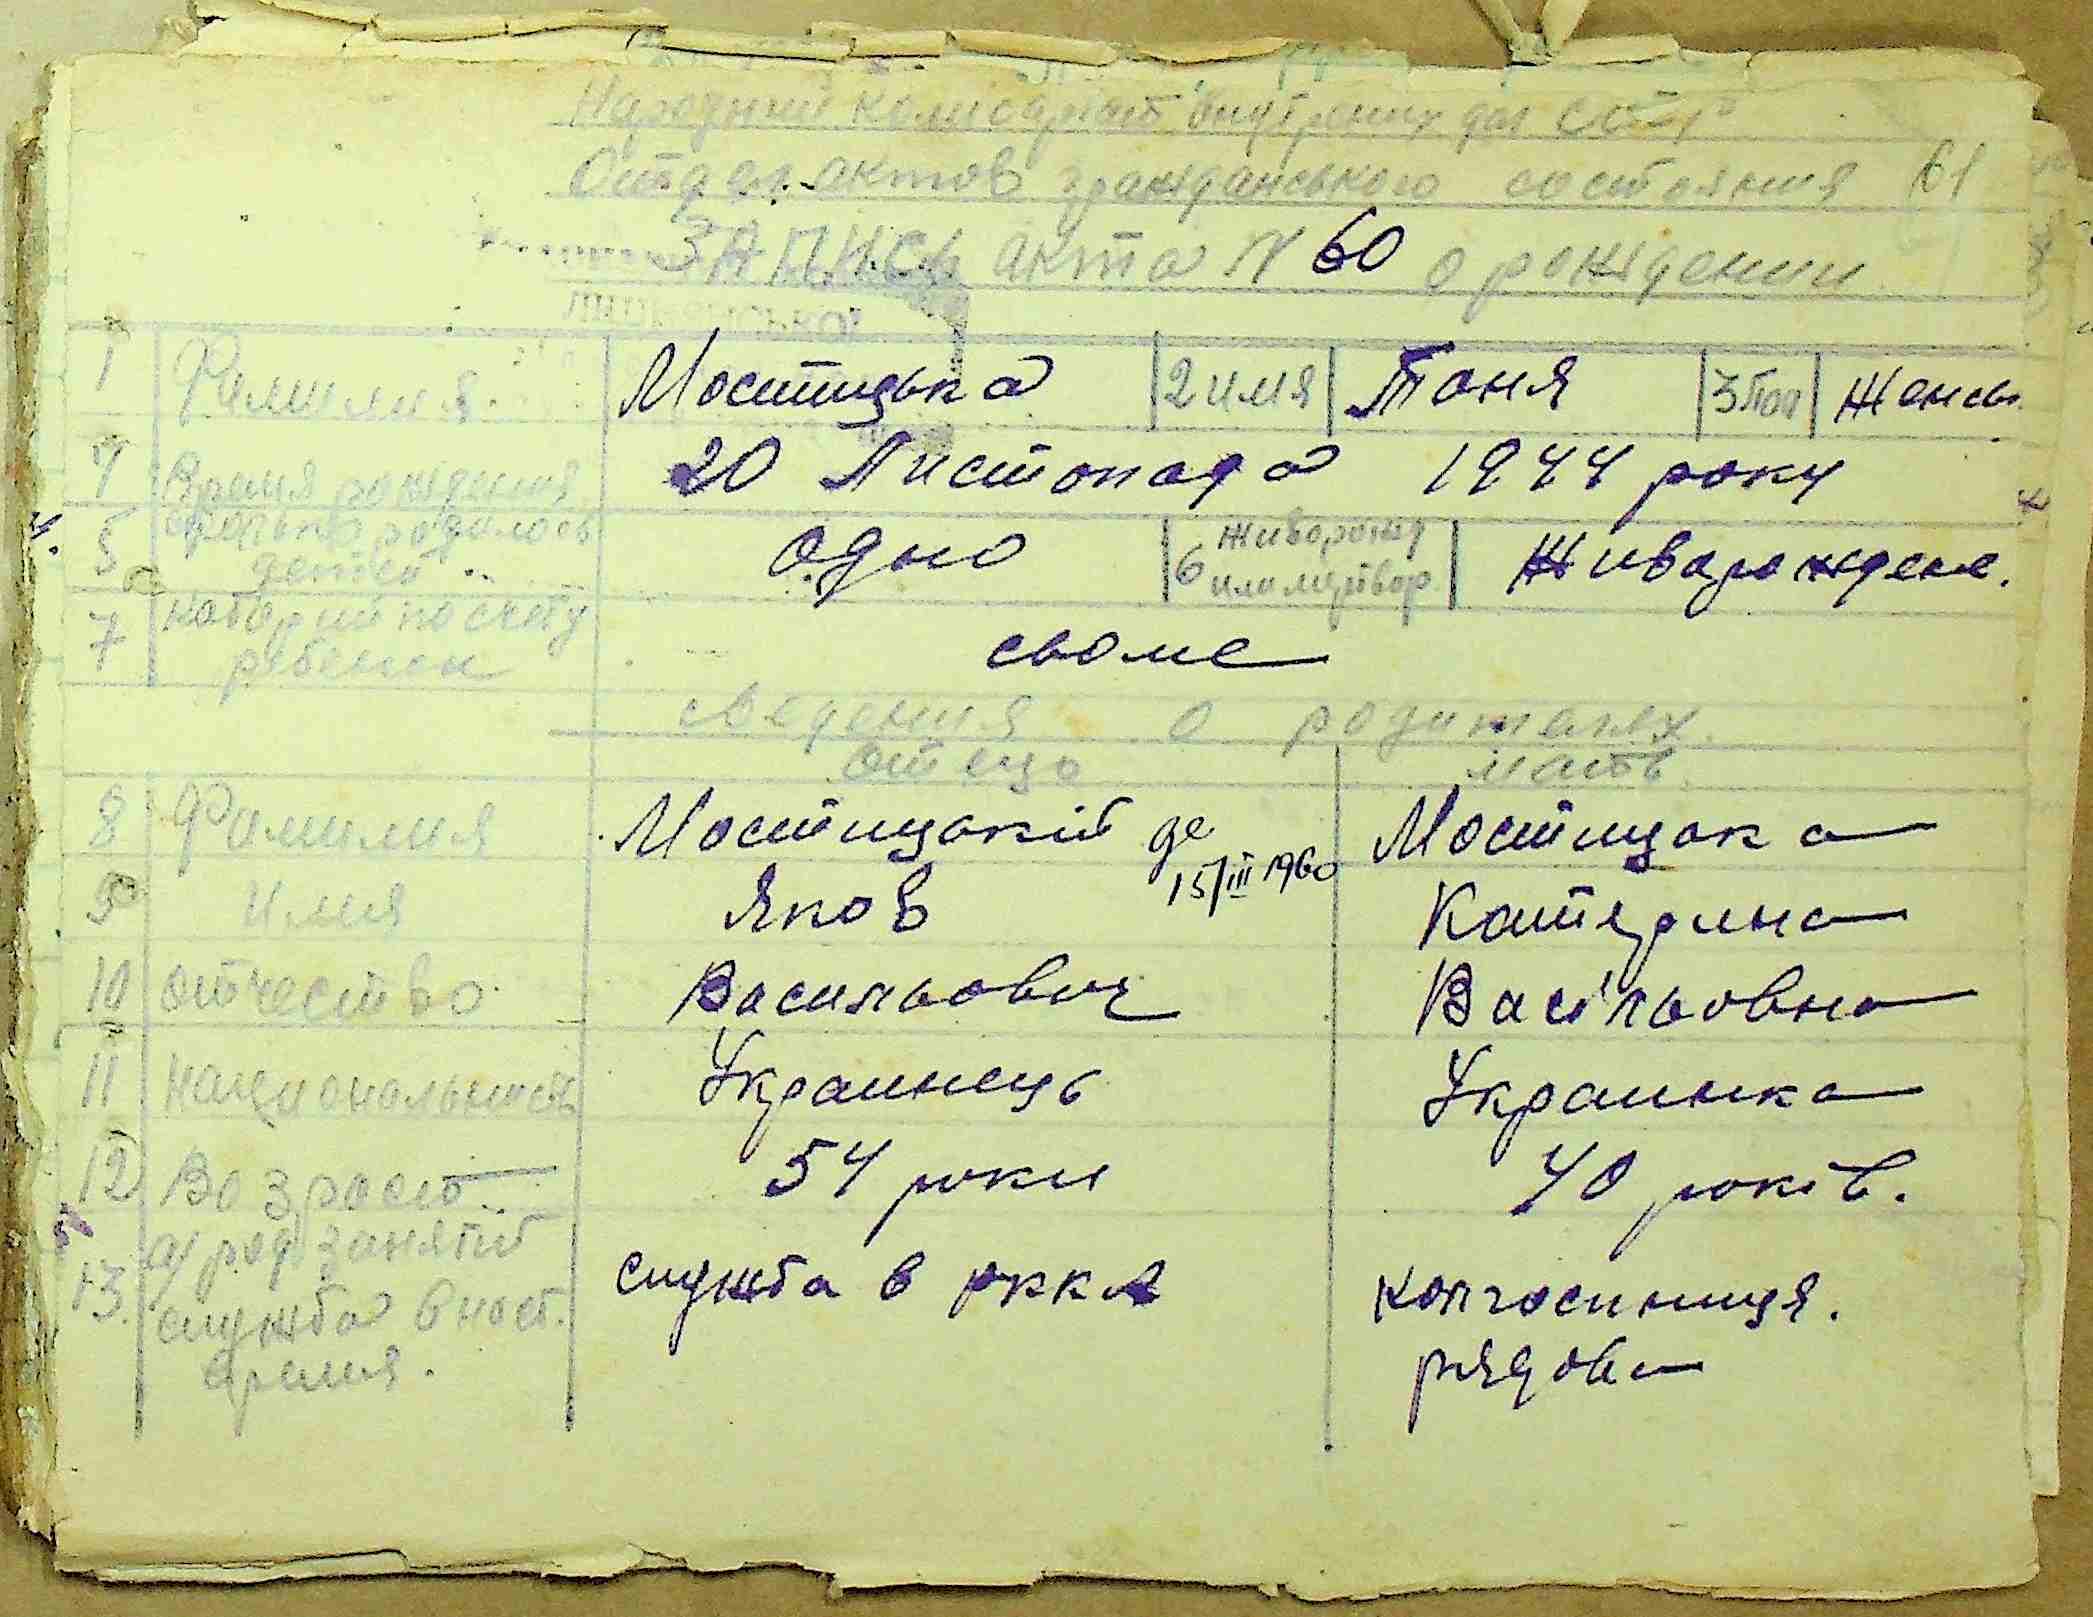 Народний комисариат внутрених дел СССР
Отдел актов гражданського состояния 61
ЗАПИСЬ акта N 60 о рождении
1 Фамилия Мостицька 2 имя Таня 3 Пол Женсь.
4 Время рождения 20 Листопада 1944 року
5 сколько родилось детей одно 6 живорожд или мертвор Живарождене.
7 который по счету ребенок сьоме
сведения о родителях
отець мать
8 Фамилия Мостицький де Мостицька
15/III 1960
9 имя Яков Катерина
10 отчество Васильович Васільовна
11 национальность Украинець Украинка
12 Возрость 54 роки 40 років.
13. а/ род занятий служба в ркка колгоспниця.
служба в наст. рядова
время.